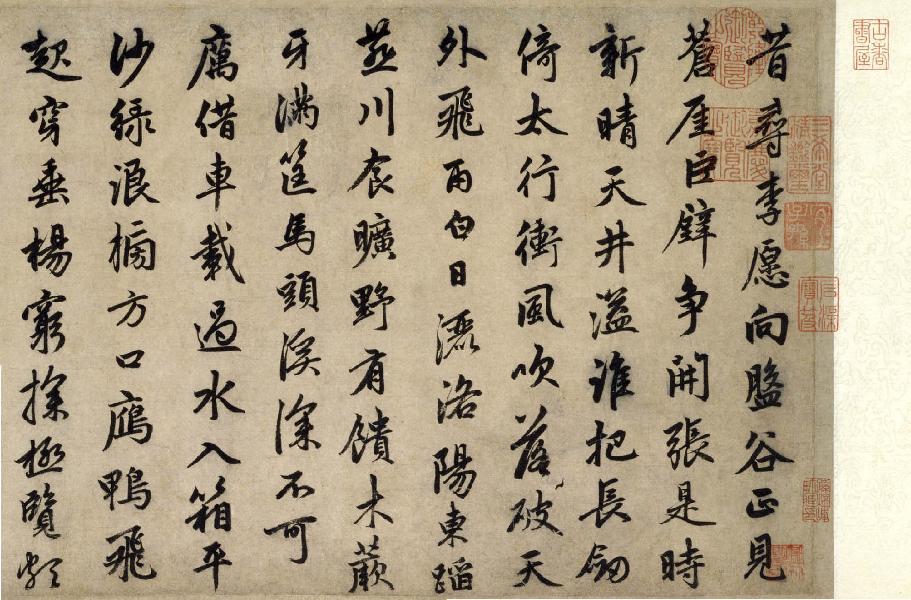 昔尋李愿向盤谷正見
蒼崖巨壁争開張是時
新晴天井溢誰把長劒
倚太行衝風吹落破天
外飛雨白日灑洛陽東蹈
燕川食曠野有饋木蕨
牙滿筐馬頭溪深不可
厲借車載過水入箱平
沙緑浪榜方口鴈鴨飛
起穿垂楊窮探極覽頗
古香書屋